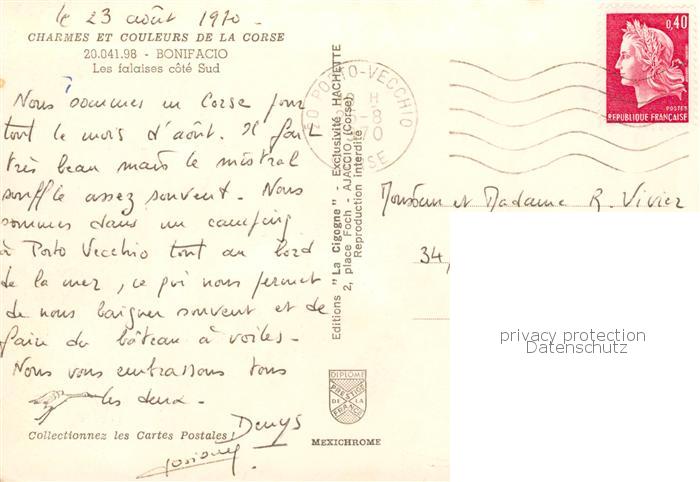 le 23 août 1970.
CHARMES ET COULEURS DE LA CORSE
20.041.98 - BONIFACIO
Les falaises côté Sud
Nous sommes en Corse pour
tout le mois d'août. Il fait
très beau mais le mistral
souffle assez souvent. Nous
sommes dans un camping
à Porto Vecchio tout au bord
de la mer, ce qui nous permet
de nous baigner souvent et de
faire du bâteau à voiles.
Nous vous embrassons tous
les deux.
Denys
Collectionnez les Cartes Postales
Editions "La Cigogne" - Exclusivité HACHETTE
2, place Foch - AJACCIO (Corse)
Reproduction interdite
DIPLOME
PRESTIGE
DE LA
FRANCE
MEXICHROME
PORTO-VECCHIO
0,40
POSTES
REPUBLIQUE FRANÇAISE
Monsieur et Madame R. Vivier
34,
privacy protection
Datenschutz